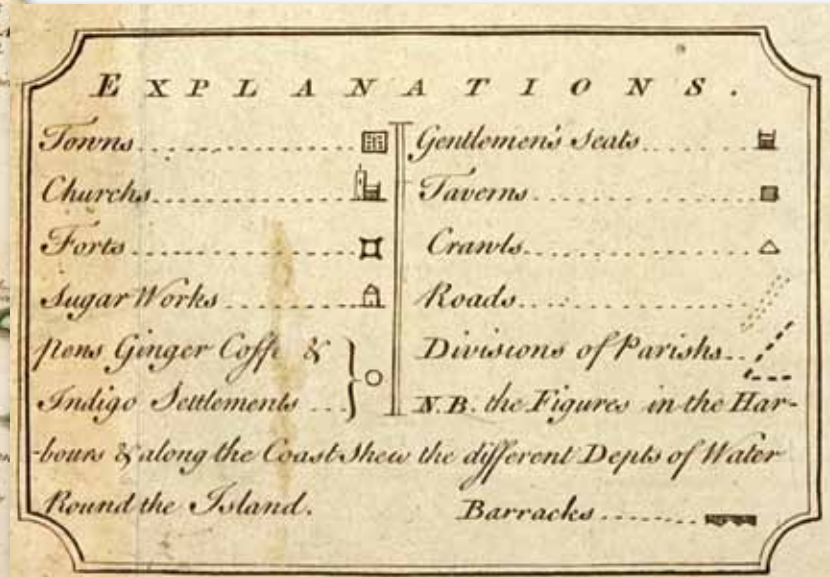 EXPLANATIONS.
Towns
Churchs
Forts
Sugar Works
pens Ginger Coffe &
Indigo Settlements
Gentlemen's Seats
Taverns
Crawls
Roads
Divisions of Parishs
N.B. the Figures in the Har-
-bours & along the Coast Shew the different Depts of Water
Round the Island.
Barracks